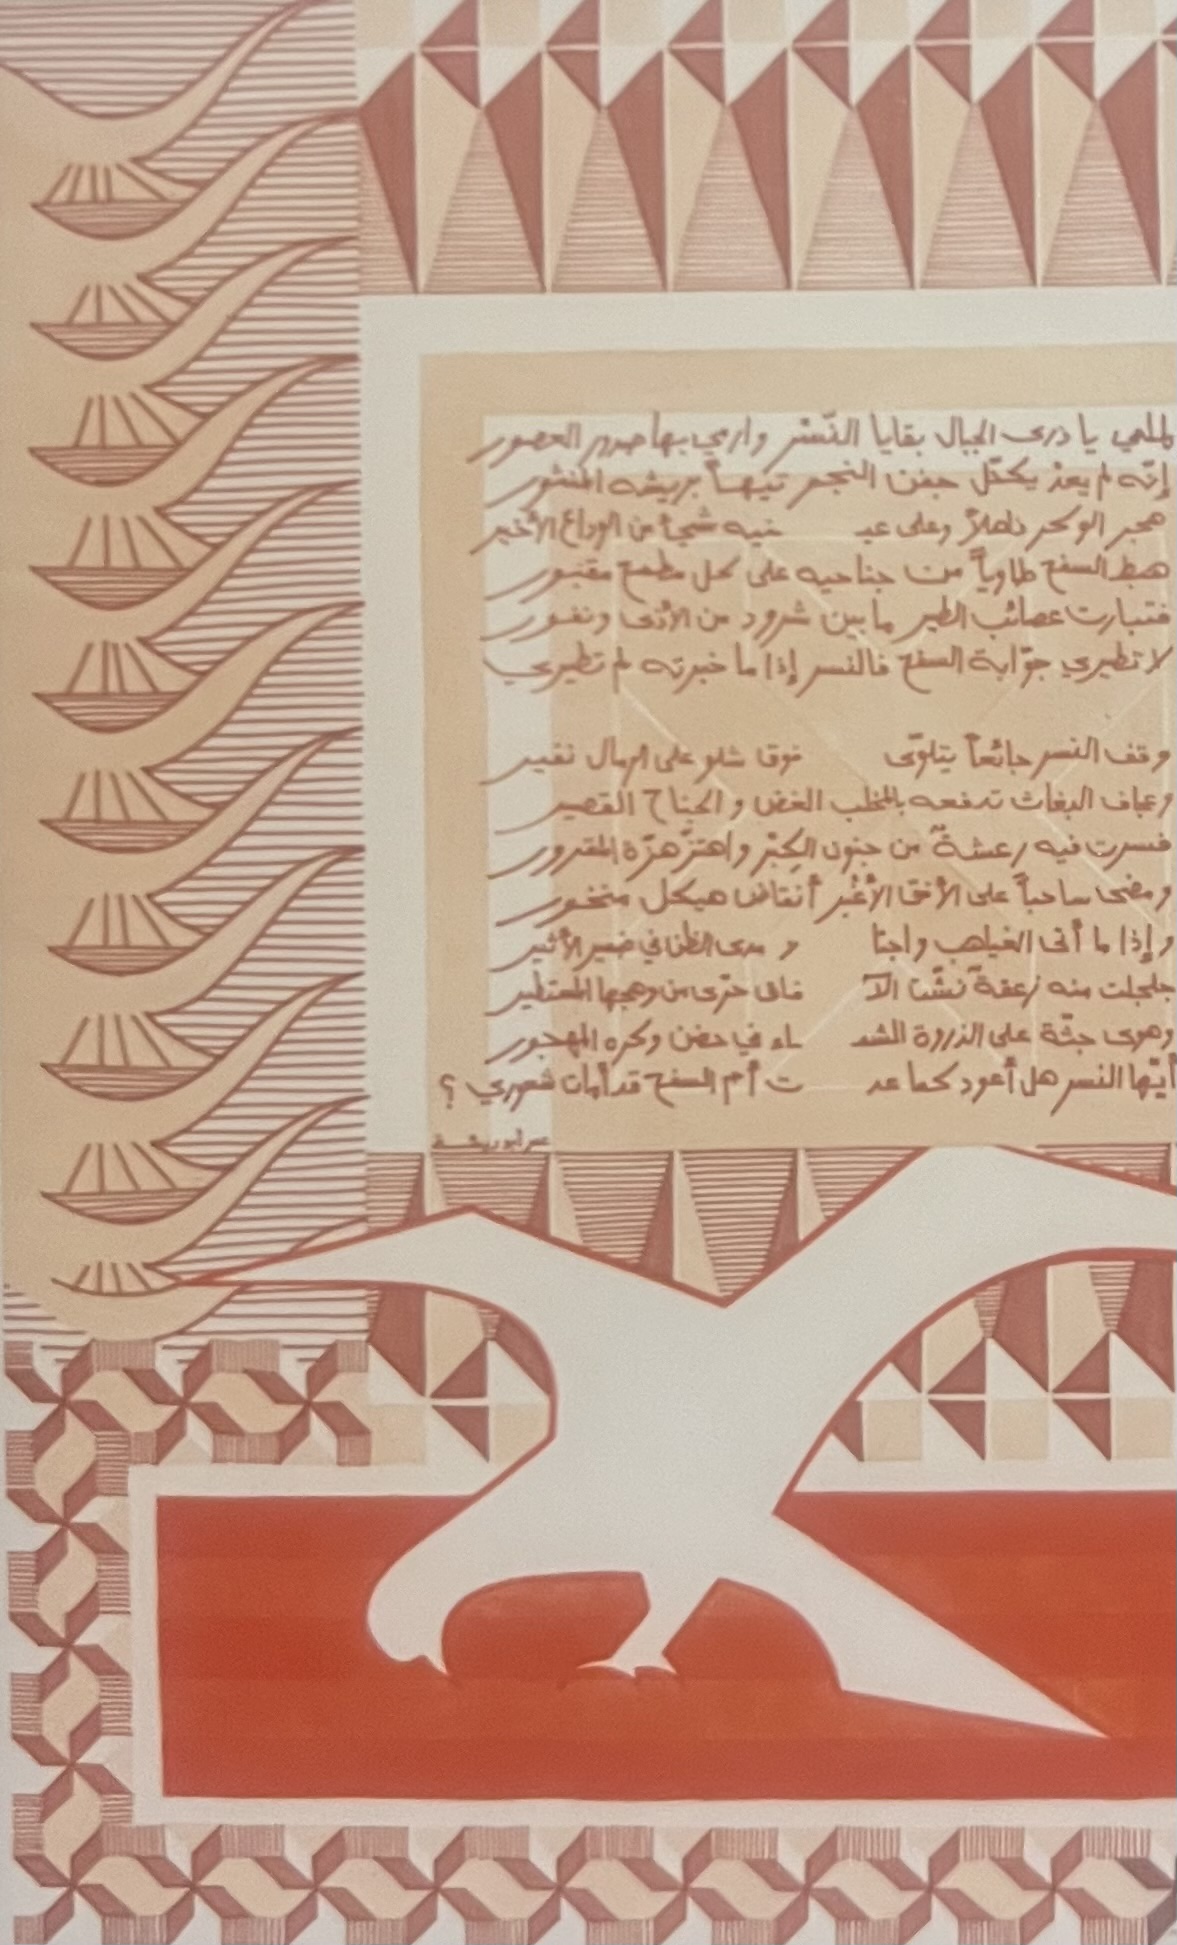 لملمي يا ذرى الجبال بقايا النّسر وارمي بها صدور العصور
إنّه لم يعد يكحّل جفن النجم تيهاً بريشه المنثور
هجر الوكر ذاهلاً وعلى عيـ نيه شيئاً من الوداع الأخير
هبط السفح طاوياً من جناحيه على كل مطمح مقبور
فتبارت عصائب الطير ما بين شرود من الأذى ونفور
لا تطيري جوّابة السفح فالنسر إذا ما خبرته لم تطيري
وقف النسر جائعاً يتلوّى فوق شلو على الرمال نثير
وعجاف البغاث تدفعه بالمخلب الغض والجناح القصير
فسرت فيه رعشةٌ من جنون الكِبْر واهتزّ هزّة المقرور
ومضى ساحباً على الأفق الأغْبر أنقاض هيكل منخور
وإذا ما أتى الغياهب واجتا ز مدى الظن في ضمير الأثير
جلجلت منه زعقة نشّت الآ فاق حرّى من وهجها المستطير
وهوى جثّة على الذروة الشمـ ـاء في حضن وكره المهجور
أيّها النسر هل أعود كما عد ت أم السفح قد أمات شعوري ؟
عمر أبو ريشة